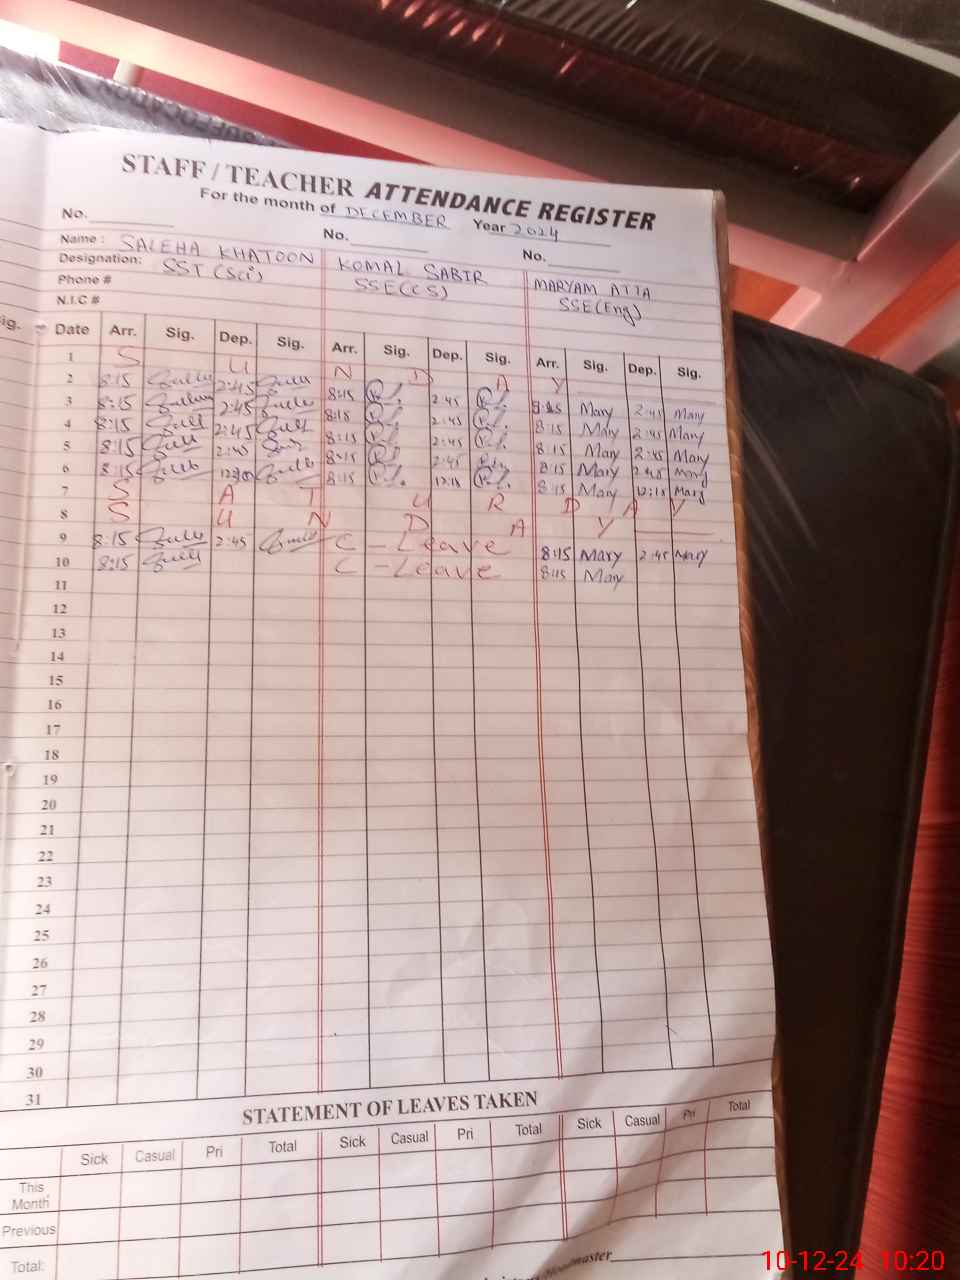 STAFF / TEACHER ATTENDANCE REGISTER
For the month of DECEMBER Year 2024
No. No. No.
Name : SALEHA KHATOON KOMAL SABIR MARYAM ATTA
Designation: SST (Sci) SSE(CS) SSE(Eng)
Phone #
N.I.C #
Date Arr. Sig. Dep. Sig. Arr. Sig. Dep. Sig. Arr. Sig. Dep. Sig.
1 S U N D A Y
2 8:15 2:45 8:15 2:45 8:15 Mary 2:45 Mary
3 8:15 2:45 8:15 2:45 8:15 Mary 2:45 Mary
4 8:15 2:45 8:15 2:45 8:15 Mary 2:45 Mary
5 8:15 2:45 8:15 2:45 8:15 Mary 2:45 Mary
6 8:15 8:15 12:15 8:15 Mary 12:15 Mary
7 S A T U R D A Y
8 S U N D A Y
9 8:15 2:45 C - Leave 8:15 Mary 2:45 Mary
10 8:15 C - Leave 8:15 Mary
11
12
13
14
15
16
17
18
19
20
21
22
23
24
25
26
27
28
29
30
31
STATEMENT OF LEAVES TAKEN
Sick Casual Pri Total Sick Casual Pri Total Sick Casual Pri Total
This Month
Previous
Total:
Headmaster
10-12-24 10:20